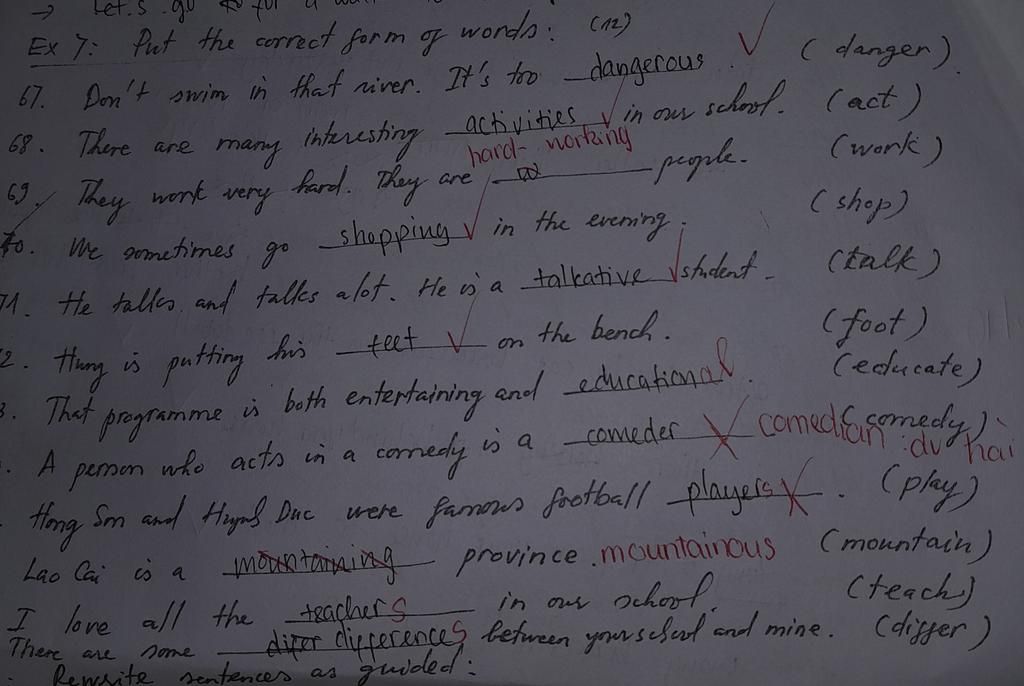 → Let's go to for a
Ex 7: Put the correct form of words: (12)
67. Don't swim in that river. It's too dangerous. (danger).
68. There are many interesting activities in our school. (act)
hard-working
69. They work very hard. They are people. (work)
70. We sometimes go shopping in the evening. (shop)
71. He talks and talks alot. He is a talkative student. (talk)
2. Hung is putting his feet on the bench. (foot)
3. That programme is both entertaining and educational. (educate)
. A person who acts in a comedy is a comeder (comedy) comedian: dv hài
Hong Son and Huynh Duc were famous football players. (play)
Lao Cai is a mountaining province. mountainous (mountain)
I love all the teachers in our school. (teach)
There are some difer differences between your school and mine. (differ)
. Rewrite sentences as guided: